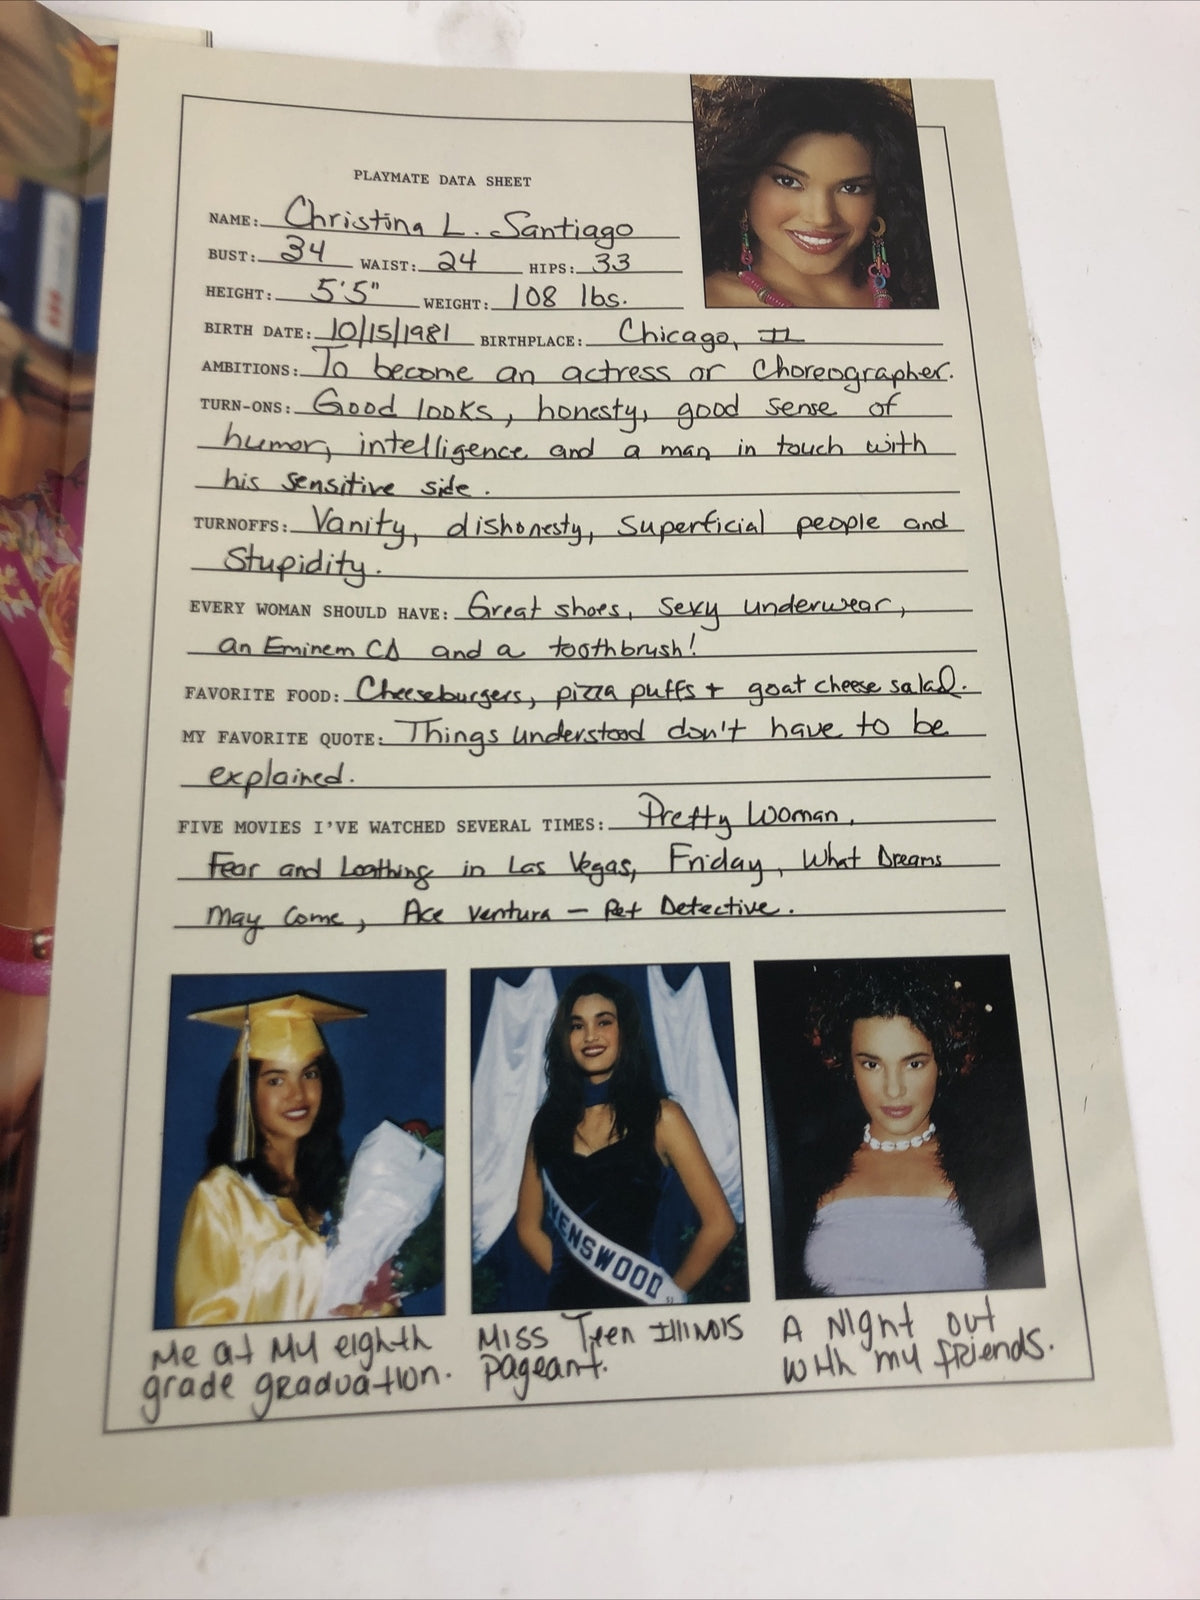 PLAYMATE DATA SHEET
NAME: Christina L. Santiago
BUST: 34 WAIST: 24 HIPS: 33
HEIGHT: 5'5" WEIGHT: 108 lbs.
BIRTH DATE: 10/15/1981 BIRTHPLACE: Chicago, IL
AMBITIONS: To become an actress or Choreographer.
TURN-ONS: Good looks, honesty, good sense of
humor, intelligence and a man in touch with
his sensitive side.
TURNOFFS: Vanity, dishonesty, Superficial people and
Stupidity.
EVERY WOMAN SHOULD HAVE: Great shoes, sexy underwear,
an Eminem CD and a toothbrush!
FAVORITE FOOD: Cheeseburgers, pizza puffs + goat cheese salad.
MY FAVORITE QUOTE: Things understood don't have to be
explained.
FIVE MOVIES I'VE WATCHED SEVERAL TIMES: Pretty Woman,
Fear and Loathing in Las Vegas, Friday, What Dreams
May Come, Ace Ventura — Pet Detective.
VENSWOOD
Me at My eighth
grade graduation.
Miss Teen Illinois
Pageant.
A Night out
with my friends.